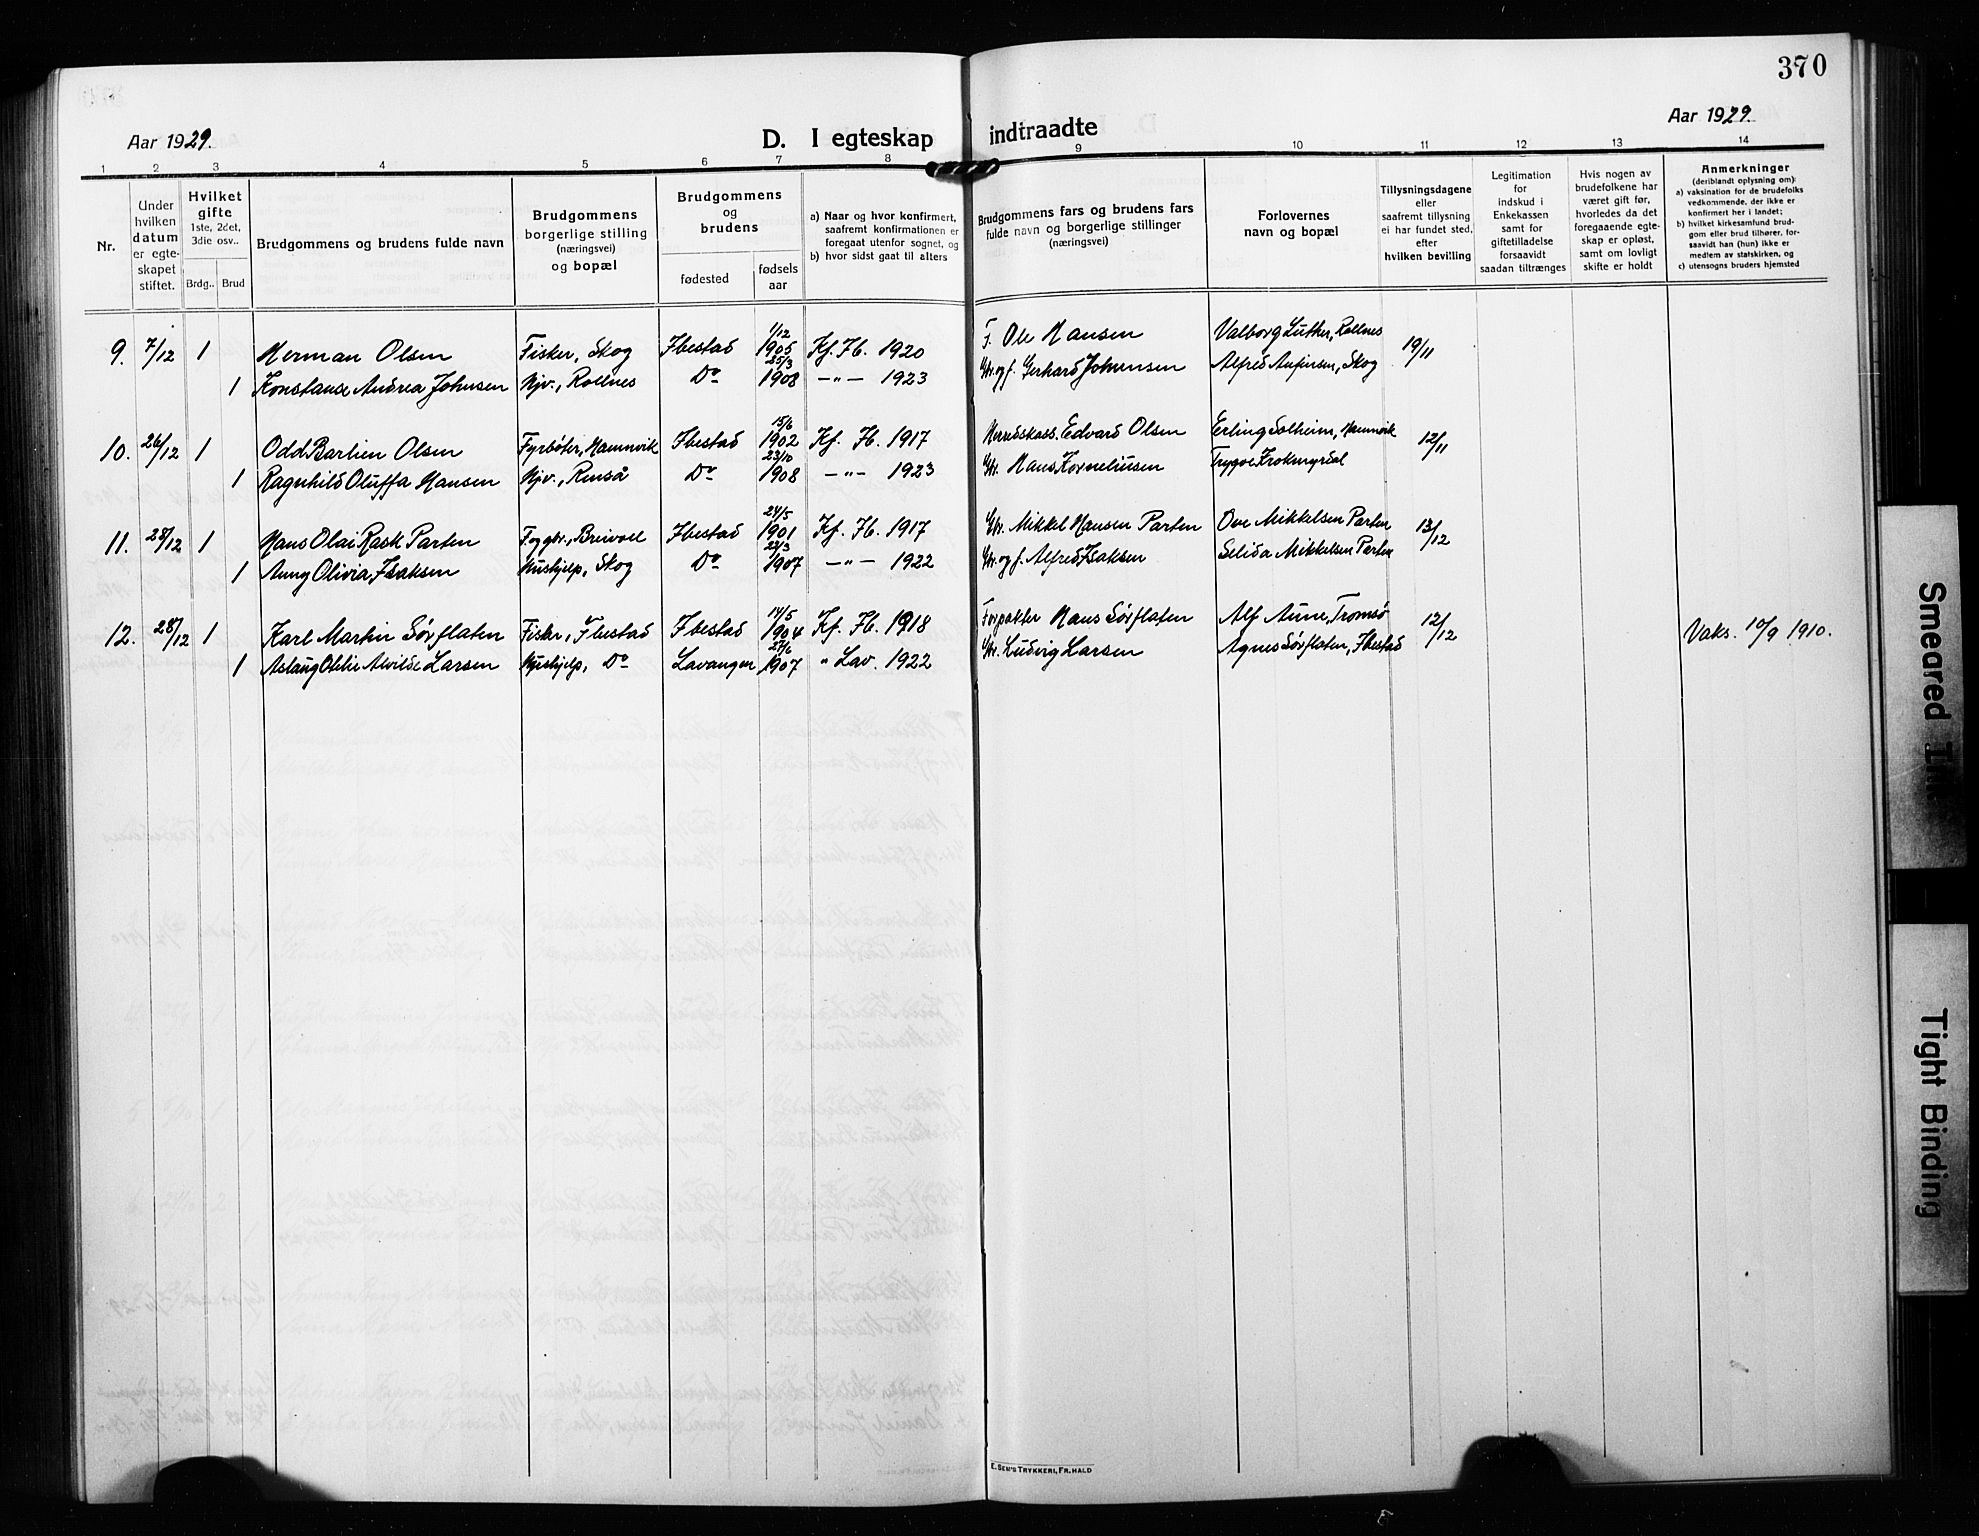 370
Aar 1929.
D. I egteskap indtraadte
Aar 1929.
1 2 3 4 5 6 7 8 9 10 11 12 13 14
Nr.
Under hvilken datum er egteskapet stiftet.
Hvilket gifte 1ste, 2det, 3die osv..
Brdg.. Brud
Brudgommens og brudens fulde navn
Brudgommens borgerlige stilling (næringsvei) og bopæl
Brudgommens og brudens
fødested
fødsels aar
a) Naar og hvor konfirmert, saafremt konfirmationen er foregaat utenfor sognet, og
b) hvor sidst gaat til alters
Brudgommens fars og brudens fars fulde navn og borgerlige stillinger (næringsvei)
Forlovernes navn og bopæl
Tillysningsdagene eller saafremt tillysning ei har fundet sted, efter hvilken bevilling
Legitimation for indskud i Enkekassen samt for giftetilladelse forsaavidt saadan tiltrænges
Hvis nogen av brudefolkene har været gift før, hvorledes da det foregaaende egteskap er opløst, samt om lovligt skifte er holdt
Anmerkninger
(deriblandt oplysning om):
a) vaksination for de brudefolks vedkommende, der ikke er konfirmert her i landet;
b) hvilket kirkesamfund brudgom eller brud tilhører, forsaavidt han (hun) ikke er medlem av statskirken, og
c) utensogns bruders hjemsted
9. 7/12 1 Herman Olsen Fisker, Skog Ibestad 1/12 1905 Kf. Ib. 1920 F. Ole Hansen Valborg Luther, Rollnes 19/11
1 Konstanse Andrea Johnsen Hjv., Rollnes Do 25/3 1908 —"— 1923 Gbr. og f. Gerhard Johnsen Alfred Anfinsen, Skog
10. 26/12 1 Odd Bartien Olsen Fyrbøter, Hamnvik Ibestad 15/6 1902 Kf. Ib. 1917 Herredskass. Edvard Olsen Erling Solheim, Hamnvik 12/11
1 Ragnhild Oluffa Hansen Hjv., Renså Do 23/10 1908 —"— 1923 Gbr. Hans Korneliusen Trygve Krokmyrdal
11. 28/12 1 Hans Olai Rask Parten Breivoll Ibestad 24/5 1901 Kf. Ib. 1917 Gbr. Mikkel Hansen Parten Ove Mikkelsen Parten 13/12
1 Anny Olivia Isaksen Hushjelp, Skog Do 22/3 1907 —"— 1922 Gbr. og f. Alfred Isaksen Selida Mikkelsen Parten
12. 28/12 1 Karl Martin Sørflaten Fisker, Ibestad Ibestad 14/5 1904 Kf. Ib. 1918 Forpakter Hans Sørflaten Alf Aune, Tromsø 12/12 Vaks. 10/9 1910.
1 Aslaug Otelie Alvilde Larsen Hushjelp, Do Lavangen 27/6 1907 " Lav. 1922 Gbr. Ludvig Larsen Agnes Sørflaten, Ibestad
E. SEM'S TRYKKERI, FR.HALD
Smeared
Tight Binding